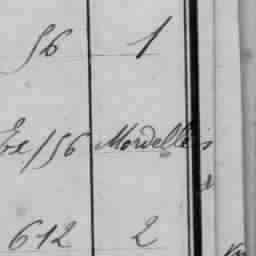 56 1
/56 Mordelles
612 2